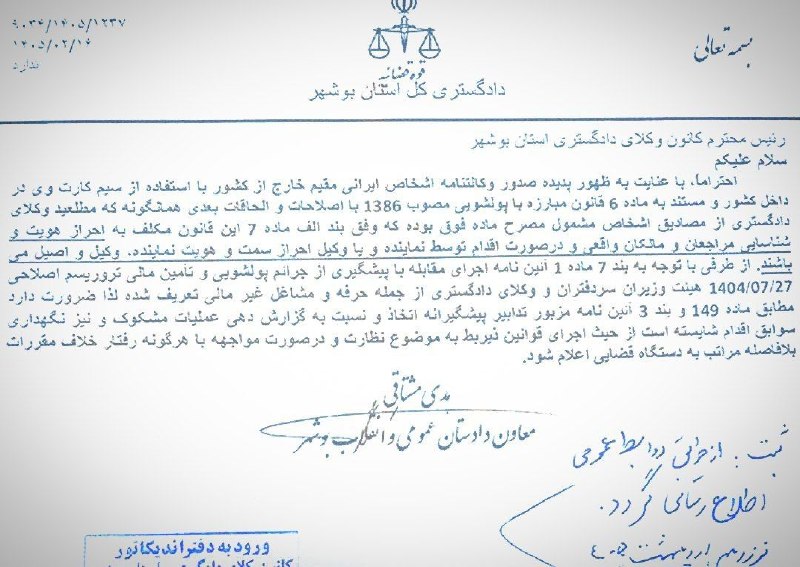 ۹۰۳۴/۱۴۰۵/۱۲۳۷
۱۴۰۵/۰۲/۱۶
ندارد
بسمه تعالی
قوه قضائیه
دادگستری کل استان بوشهر
رئیس محترم کانون وکلای دادگستری استان بوشهر
سلام علیکم
احتراما، با عنایت به ظهور پدیده صدور وکالتنامه اشخاص ایرانی مقیم خارج از کشور با استفاده از سیم کارت وی در
داخل کشور و مستند به ماده 6 قانون مبارزه با پولشویی مصوب 1386 با اصلاحات و الحاقات بعدی همانگونه که مطلعید وکلای
دادگستری از مصادیق اشخاص مشمول مصرح ماده فوق بوده که وفق بند الف ماده 7 این قانون مکلف به احراز هویت و
شناسایی مراجعان و مالکان واقعی و درصورت اقدام توسط نماینده و یا وکیل احراز سمت و هویت نماینده، وکیل و اصیل می
باشند. از طرفی با توجه به بند 7 ماده 1 آئین نامه اجرای مقابله با پیشگیری از جرائم پولشویی و تأمین مالی تروریسم اصلاحی
1404/07/27 هیئت وزیران سردفتران و وکلای دادگستری از جمله حرفه و مشاغل غیر مالی تعریف شده لذا ضرورت دارد
مطابق ماده 149 و بند 3 آئین نامه مزبور تدابیر پیشگیرانه اتخاذ و نسبت به گزارش دهی عملیات مشکوک و نیز نگهداری
سوابق اقدام شایسته است از حیث اجرای قوانین ذیربط به موضوع نظارت و درصورت مواجهه با هرگونه رفتار خلاف مقررات
بلافاصله مراتب به دستگاه قضایی اعلام شود.
مشتاقی
معاون دادستان عمومی و انقلاب بوشهر
ثبت. روابط عمومی
اطلاع رسانی گردد.
اردیبهشت
ورود به دفتر اندیکاتور